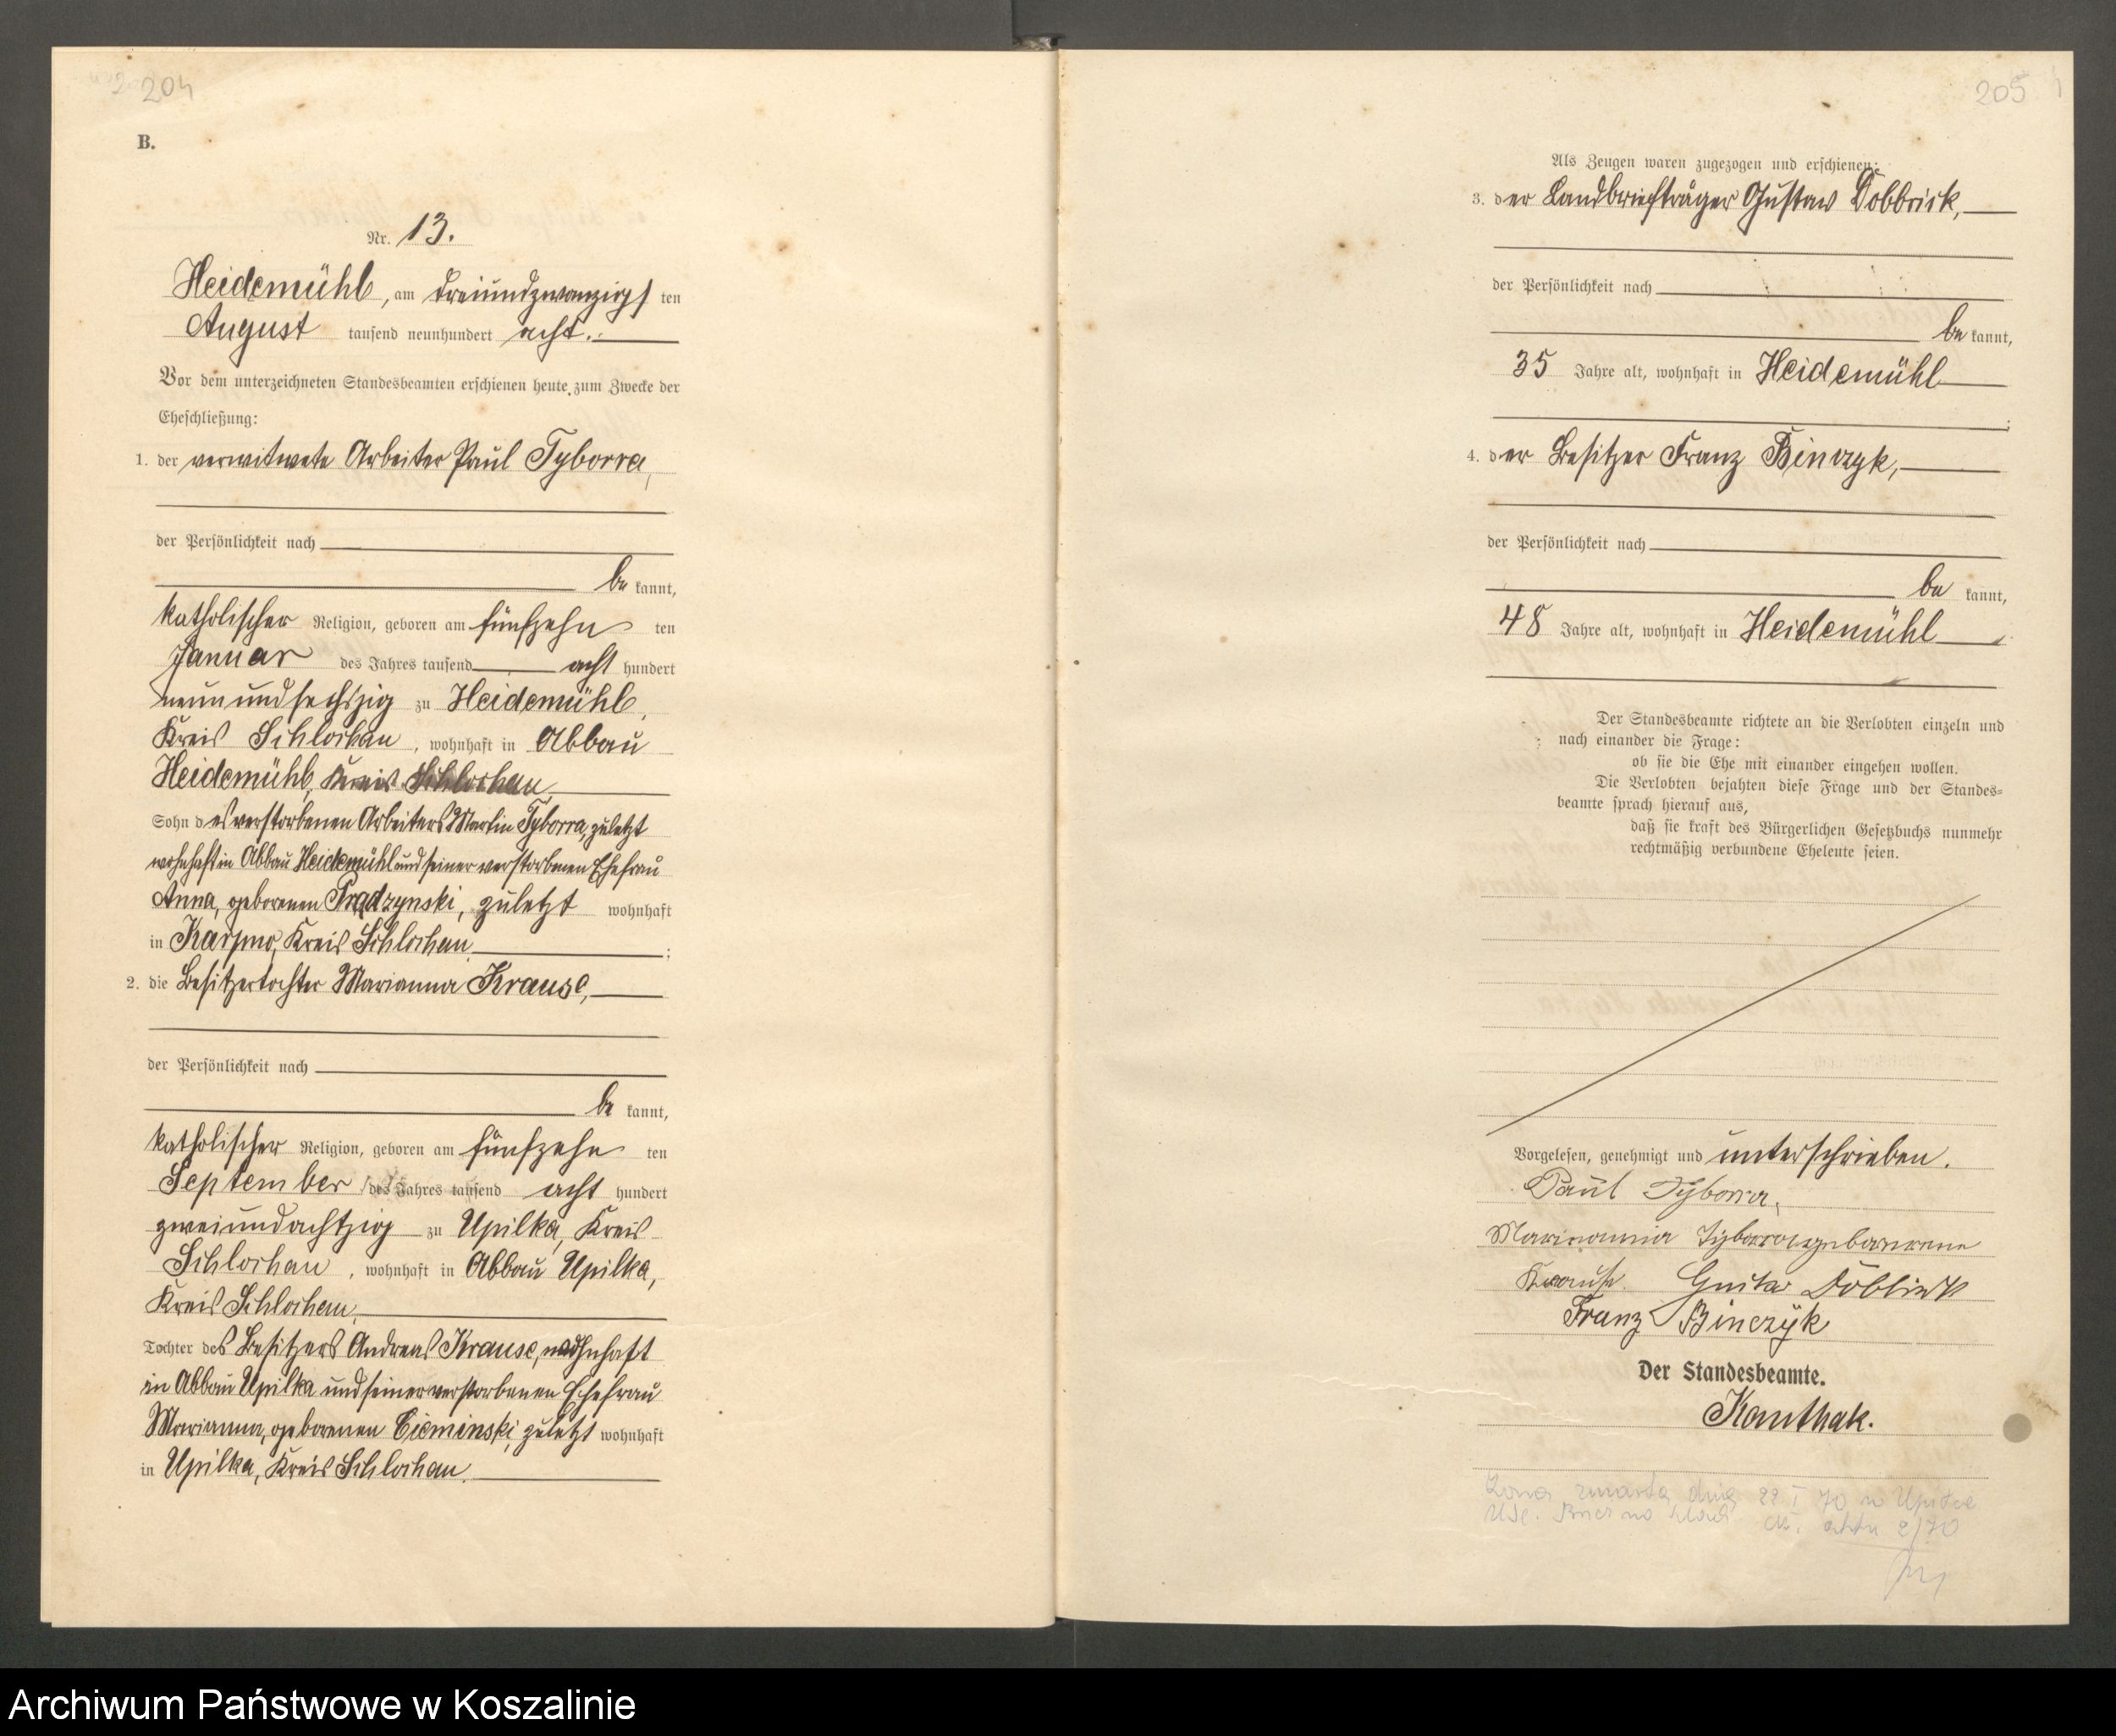 204
B.
Nr. 13.
Heidemühl, am dreiundzwanzigsten
August tausend neunhundert acht.
Vor dem unterzeichneten Standesbeamten erschienen heute zum Zwecke der
Eheschließung:
1. der verwitwete Arbeiter Paul Tyborra,
der Persönlichkeit nach
bekannt,
katholischer Religion, geboren am fünfzehnten
Januar des Jahres tausend achthundert
neunundsechszig zu Heidemühl,
Kreis Schlochau, wohnhaft in Abbau
Heidemühl, Kreis Schlochau
Sohn des verstorbenen Arbeiters Martin Tyborra, zuletzt
wohnhaft in Abbau Heidemühl und seiner verstorbenen Ehefrau
Anna, geborenen Prądzynski, zuletzt wohnhaft
in Karpno, Kreis Schlochau;
2. die Besitzertochter Marianna Krause,
der Persönlichkeit nach
bekannt,
katholischer Religion, geboren am fünfzehnten
September des Jahres tausend achthundert
zweiundachtzig zu Upilka, Kreis
Schlochau, wohnhaft in Abbau Upilka,
Kreis Schlochau,
Tochter des Besitzers Andreas Krause, wohnhaft
in Abbau Upilka und seiner verstorbenen Ehefrau
Marianna, geborenen Cieminski, zuletzt wohnhaft
in Upilka, Kreis Schlochau.
205
Als Zeugen waren zugezogen und erschienen:
3. der Landbriefträger Gustav Dobbrick,
der Persönlichkeit nach
bekannt,
35 Jahre alt, wohnhaft in Heidemühl
;
4. der Besitzer Franz Binczyk,
der Persönlichkeit nach
bekannt,
48 Jahre alt, wohnhaft in Heidemühl
Der Standesbeamte richtete an die Verlobten einzeln und
nach einander die Frage:
ob sie die Ehe mit einander eingehen wollen.
Die Verlobten bejahten diese Frage und der Standes-
beamte sprach hierauf aus,
daß sie kraft des Bürgerlichen Gesetzbuchs nunmehr
rechtmäßig verbundene Eheleute seien.
Vorgelesen, genehmigt und unterschrieben.
Paul Tyborra,
Marianna Tyborra geborene
Krause. Gustav Dobbrick
Franz Binczyk
Der Standesbeamte.
Kauthak.
Żona zmarła dnia 22 I 70 w Upiłce
USC. akt 2/70
Archiwum Państwowe w Koszalinie